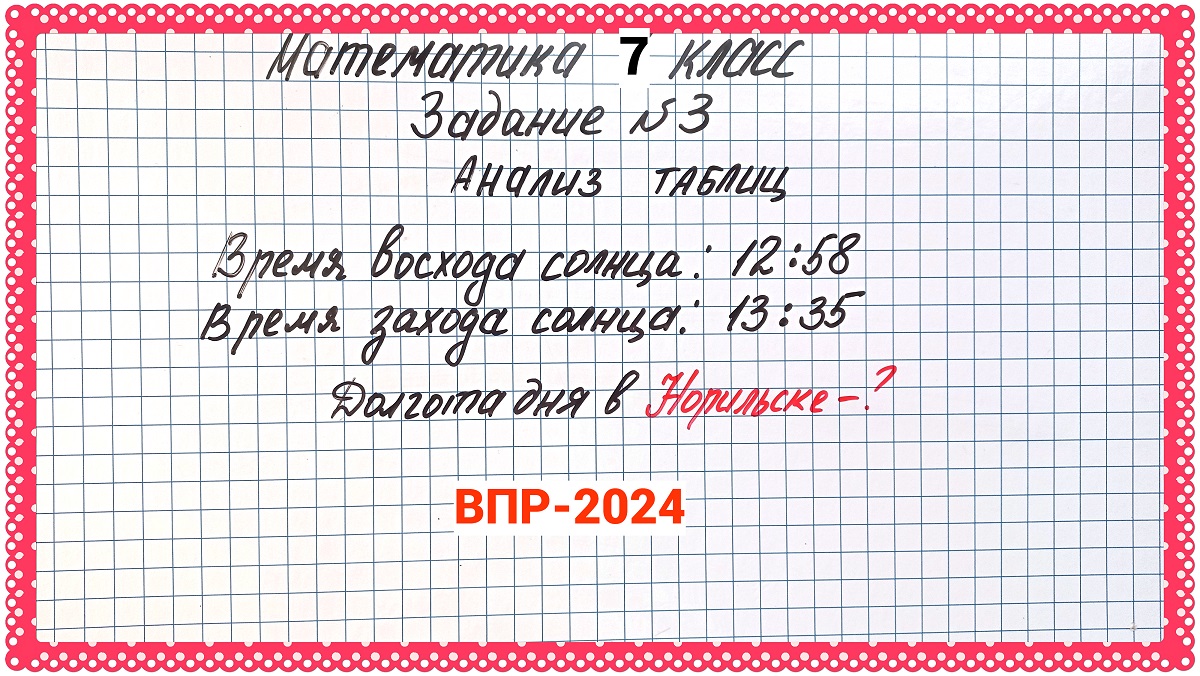 Математика 7 класс
Задание №3
Анализ таблиц
Время восхода солнца: 12:58
Время захода солнца: 13:35
Долгота дня в Норильске-?
ВПР-2024